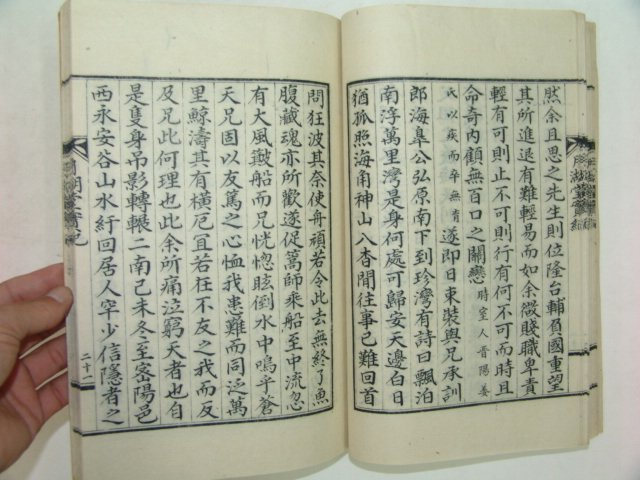 然余且思之先生則位隆台輔負國重望
其所進退有難輕易而如余微賤職卑責
輕有可則止不可則行有何不可而時且
命奇內顧無百口之關戀時室人晋陽姜
氏以疾而卒無育遂即日東裝與兄承訓
郎海皐公弘原南下到珍灣有詩曰飄泊
南浮萬里灣是身何處可歸安天邊白日
猶孤照海角神山八杳聞往事已難回首
問狂波其奈使舟頑若令此去無終了魚
腹藏魂亦所歡遂促篙師乘船至中流忽
有大風皷船而兄恍惚眩倒水中嗚乎蒼
天兄固以友篤之心恤我患難而同泛萬
里鯨濤其有橫厄宜若在不友之我而反
及兄此何理也此余所痛泣窮天者也自
是隻身吊影轉輾二南己未冬至密陽邑
西永安谷山水紆回居人罕少信隱者之
湖堂實紀
二十二